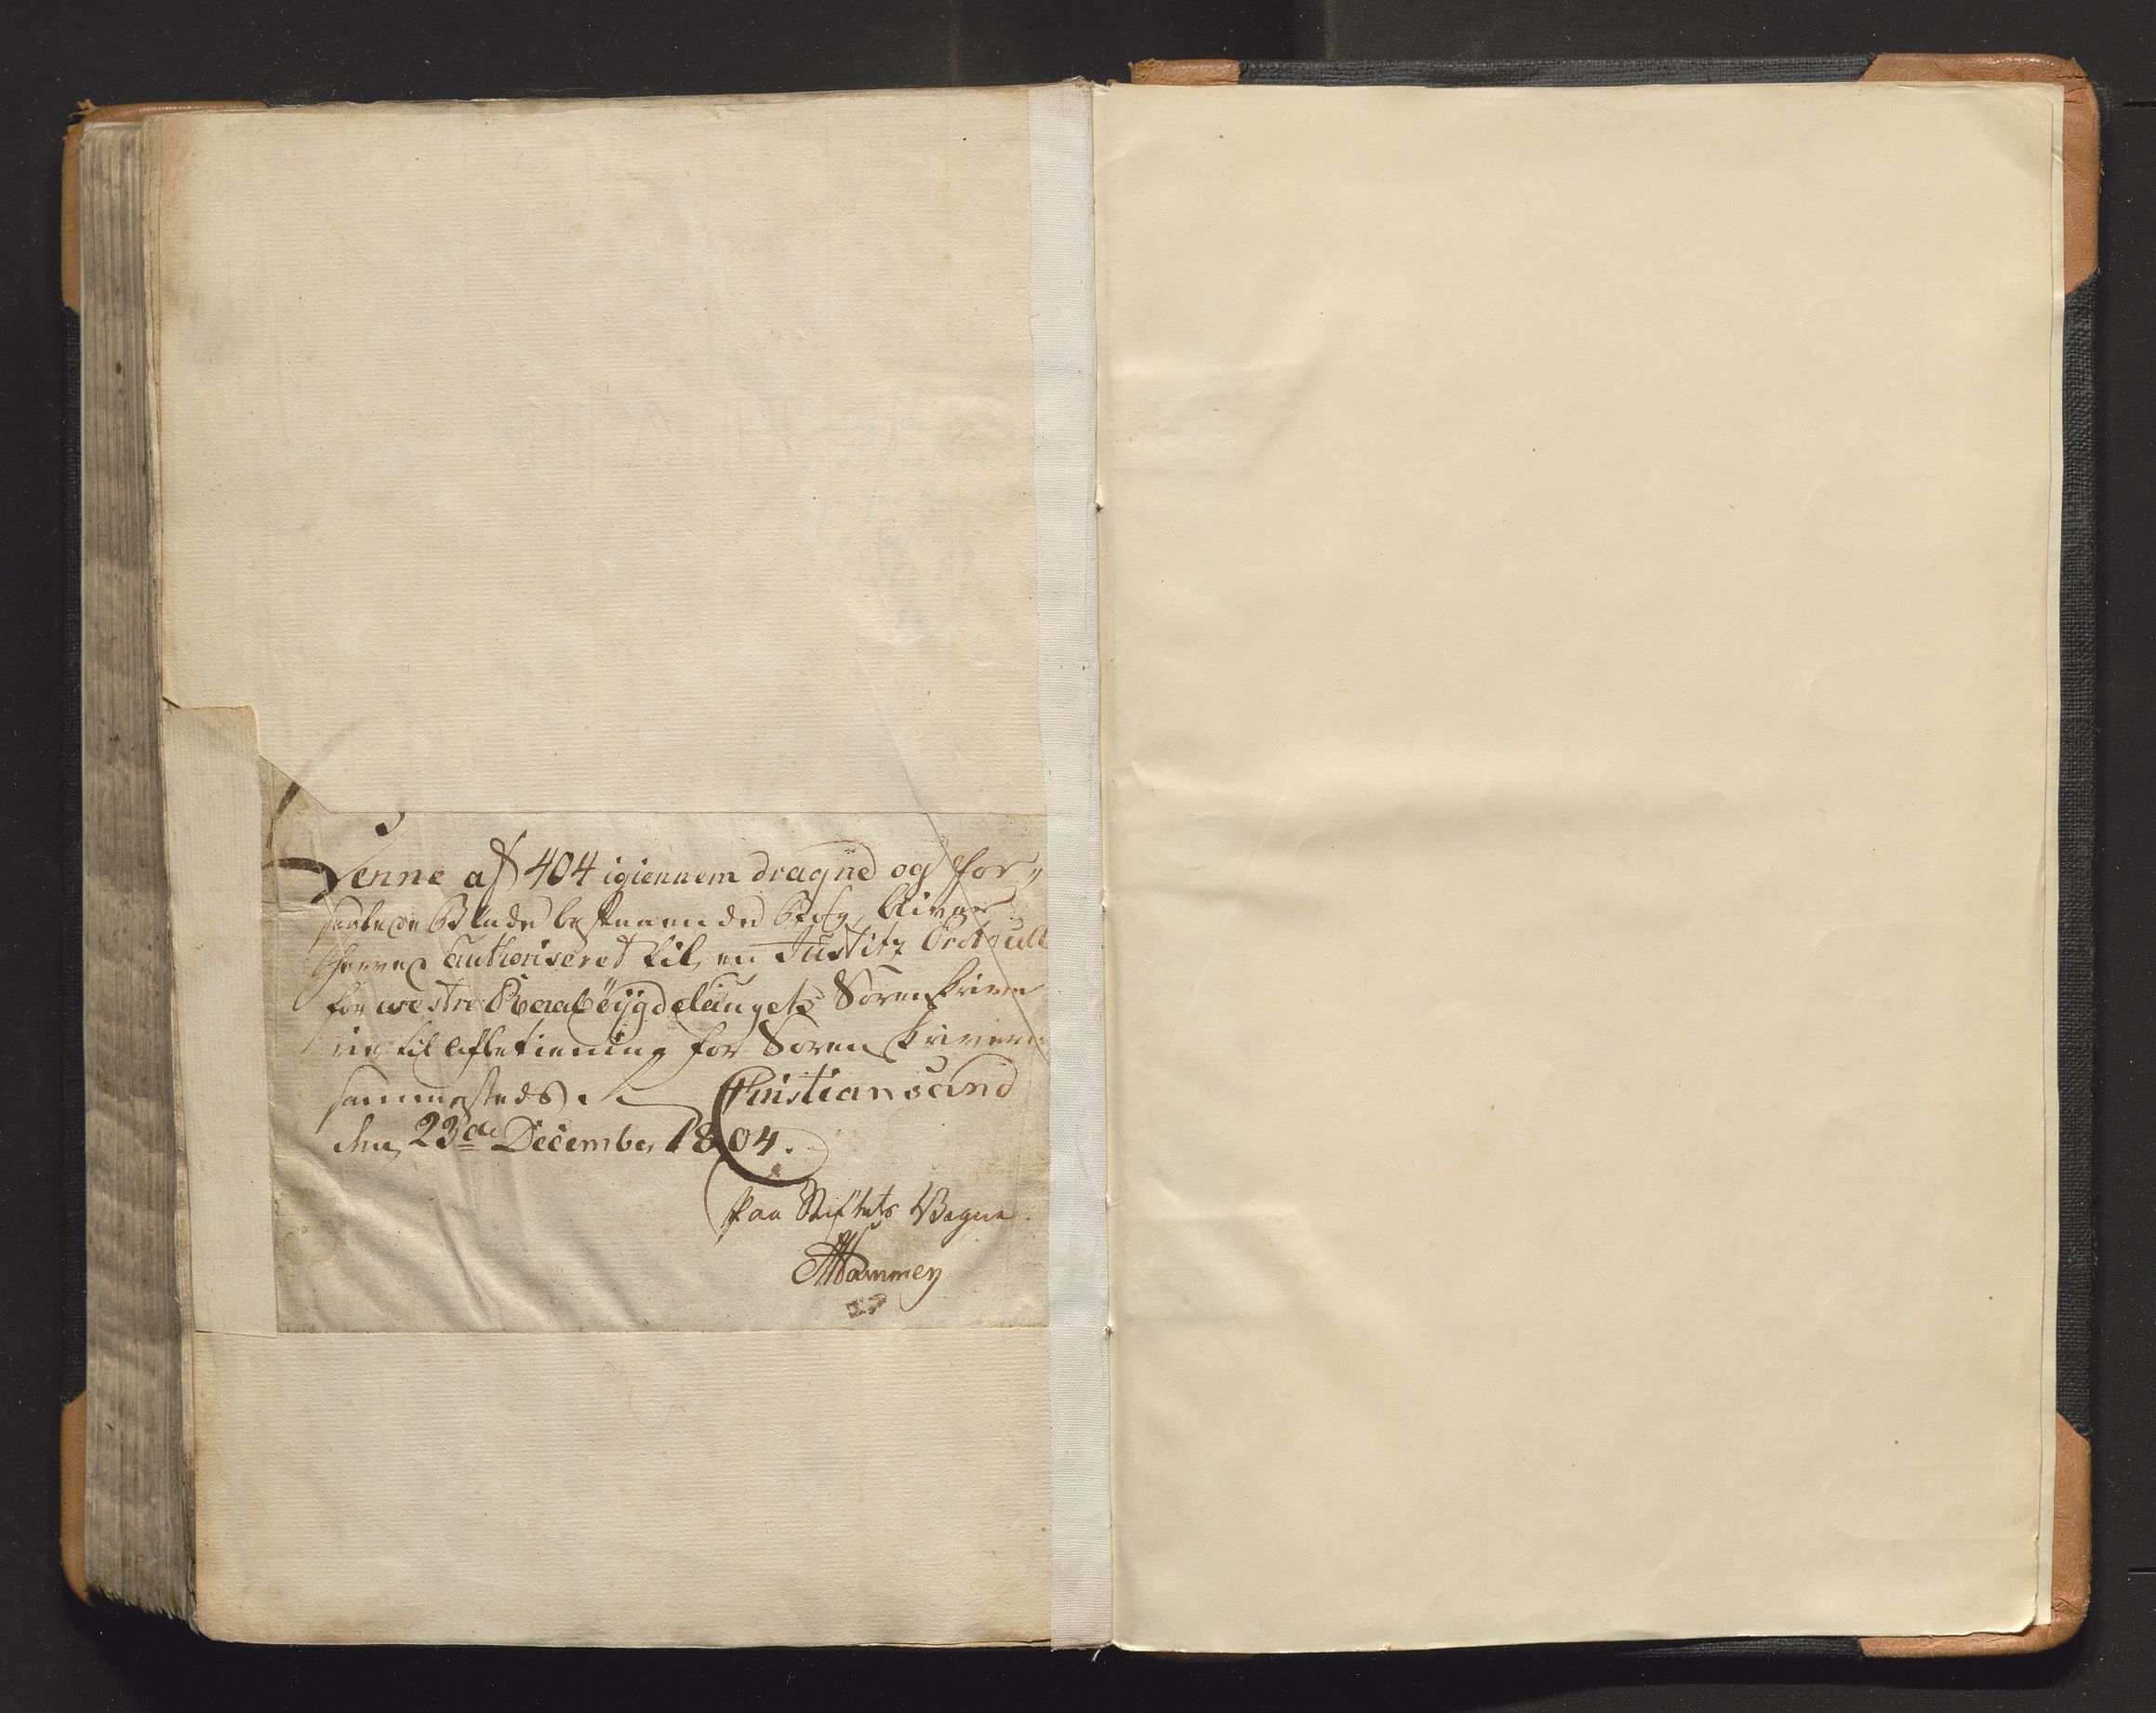 Denne af 404 igiennem dragne og for„
seglede Blade bestaaende Bog, bliver
herved authoriseret til en Justitz Protocoll
for westre Raabÿgdelaugets Sorenskrive
rie til Efterretning for Sorenskriveren
sammesteds. Christiansand
den 23de December 1804.
Paa Stiftets Vegne.